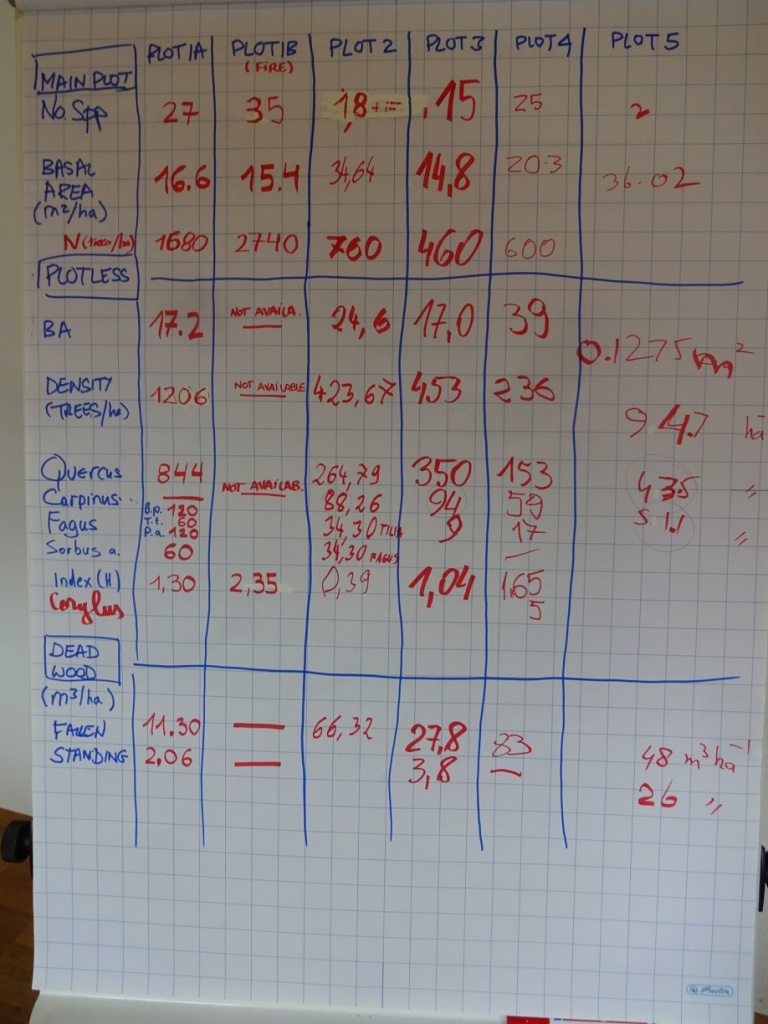 PLOT 1A PLOT 1B PLOT 2 PLOT 3 PLOT 4 PLOT 5
(FIRE)
MAIN PLOT
No. Spp 27 35 18 15 25 2
BASAL AREA (m²/ha) 16.6 15.4 34,64 14,8 20.3 36.02
N (trees/ha) 1680 2740 760 460 600
PLOTLESS
BA 17.2 NOT AVAILA. 24,6 17,0 39 0.1275 m²
DENSITY (TREES/ha) 1206 NOT AVAILABLE 423,67 453 236 947 ha
Quercus 844 NOT AVAILAB. 264,79 350 153 435 "
Carpinus — B.p. 120 88,26 94 59 511 "
Fagus T.t. 60 P.a. 120 34,30 TILIA 9 17
Sorbus a. 60 34,30 FAGUS —
Index (H) 1,30 2,35 0,39 1,04 1.65
Corylus 5
DEAD WOOD
(m³/ha)
FALLEN 11.30 — 66,32 27,8 83 48 m³ha⁻¹
STANDING 2,06 — 3,8 — 26 "